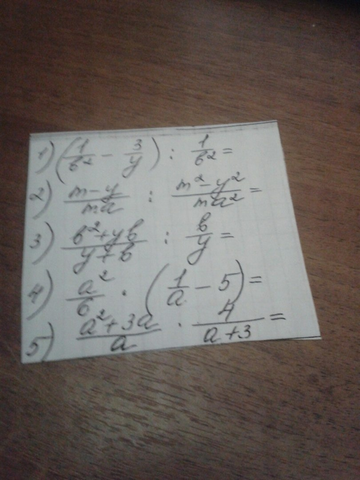 1) (1/b² - 3/y) : 1/b² =
2) m-y/ma : m²-y²/ma² =
3) b²+yb/y+b : b/y =
4) a²/6 · (1/a - 5) =
5) a²+3a/a · 4/a+3 =